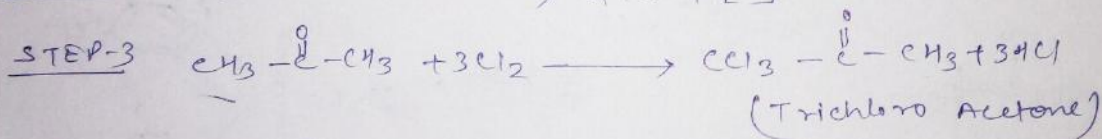 O O
STEP-3 CH3 - C - CH3 + 3Cl2 ⟶ CCl3 - C - CH3 + 3HCl
(Trichloro Acetone)